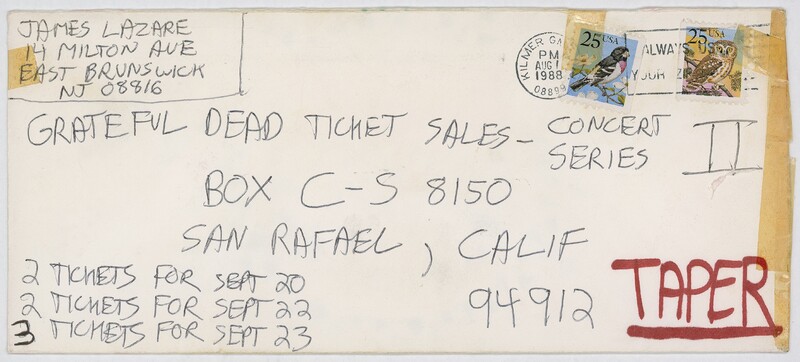 JAMES LAZARE
14 MILTON AVE
EAST BRUNSWICK
NJ 08816
KILMER
PM
AUG
1988
08899
25 USA
ALWAYS USE
YOUR ZIP
25 USA
GRATEFUL DEAD TICKET SALES - CONCERT SERIES II
BOX C-S 8150
SAN RAFAEL, CALIF
94912
2 TICKETS FOR SEPT 20
2 TICKETS FOR SEPT 22
3 TICKETS FOR SEPT 23
TAPER